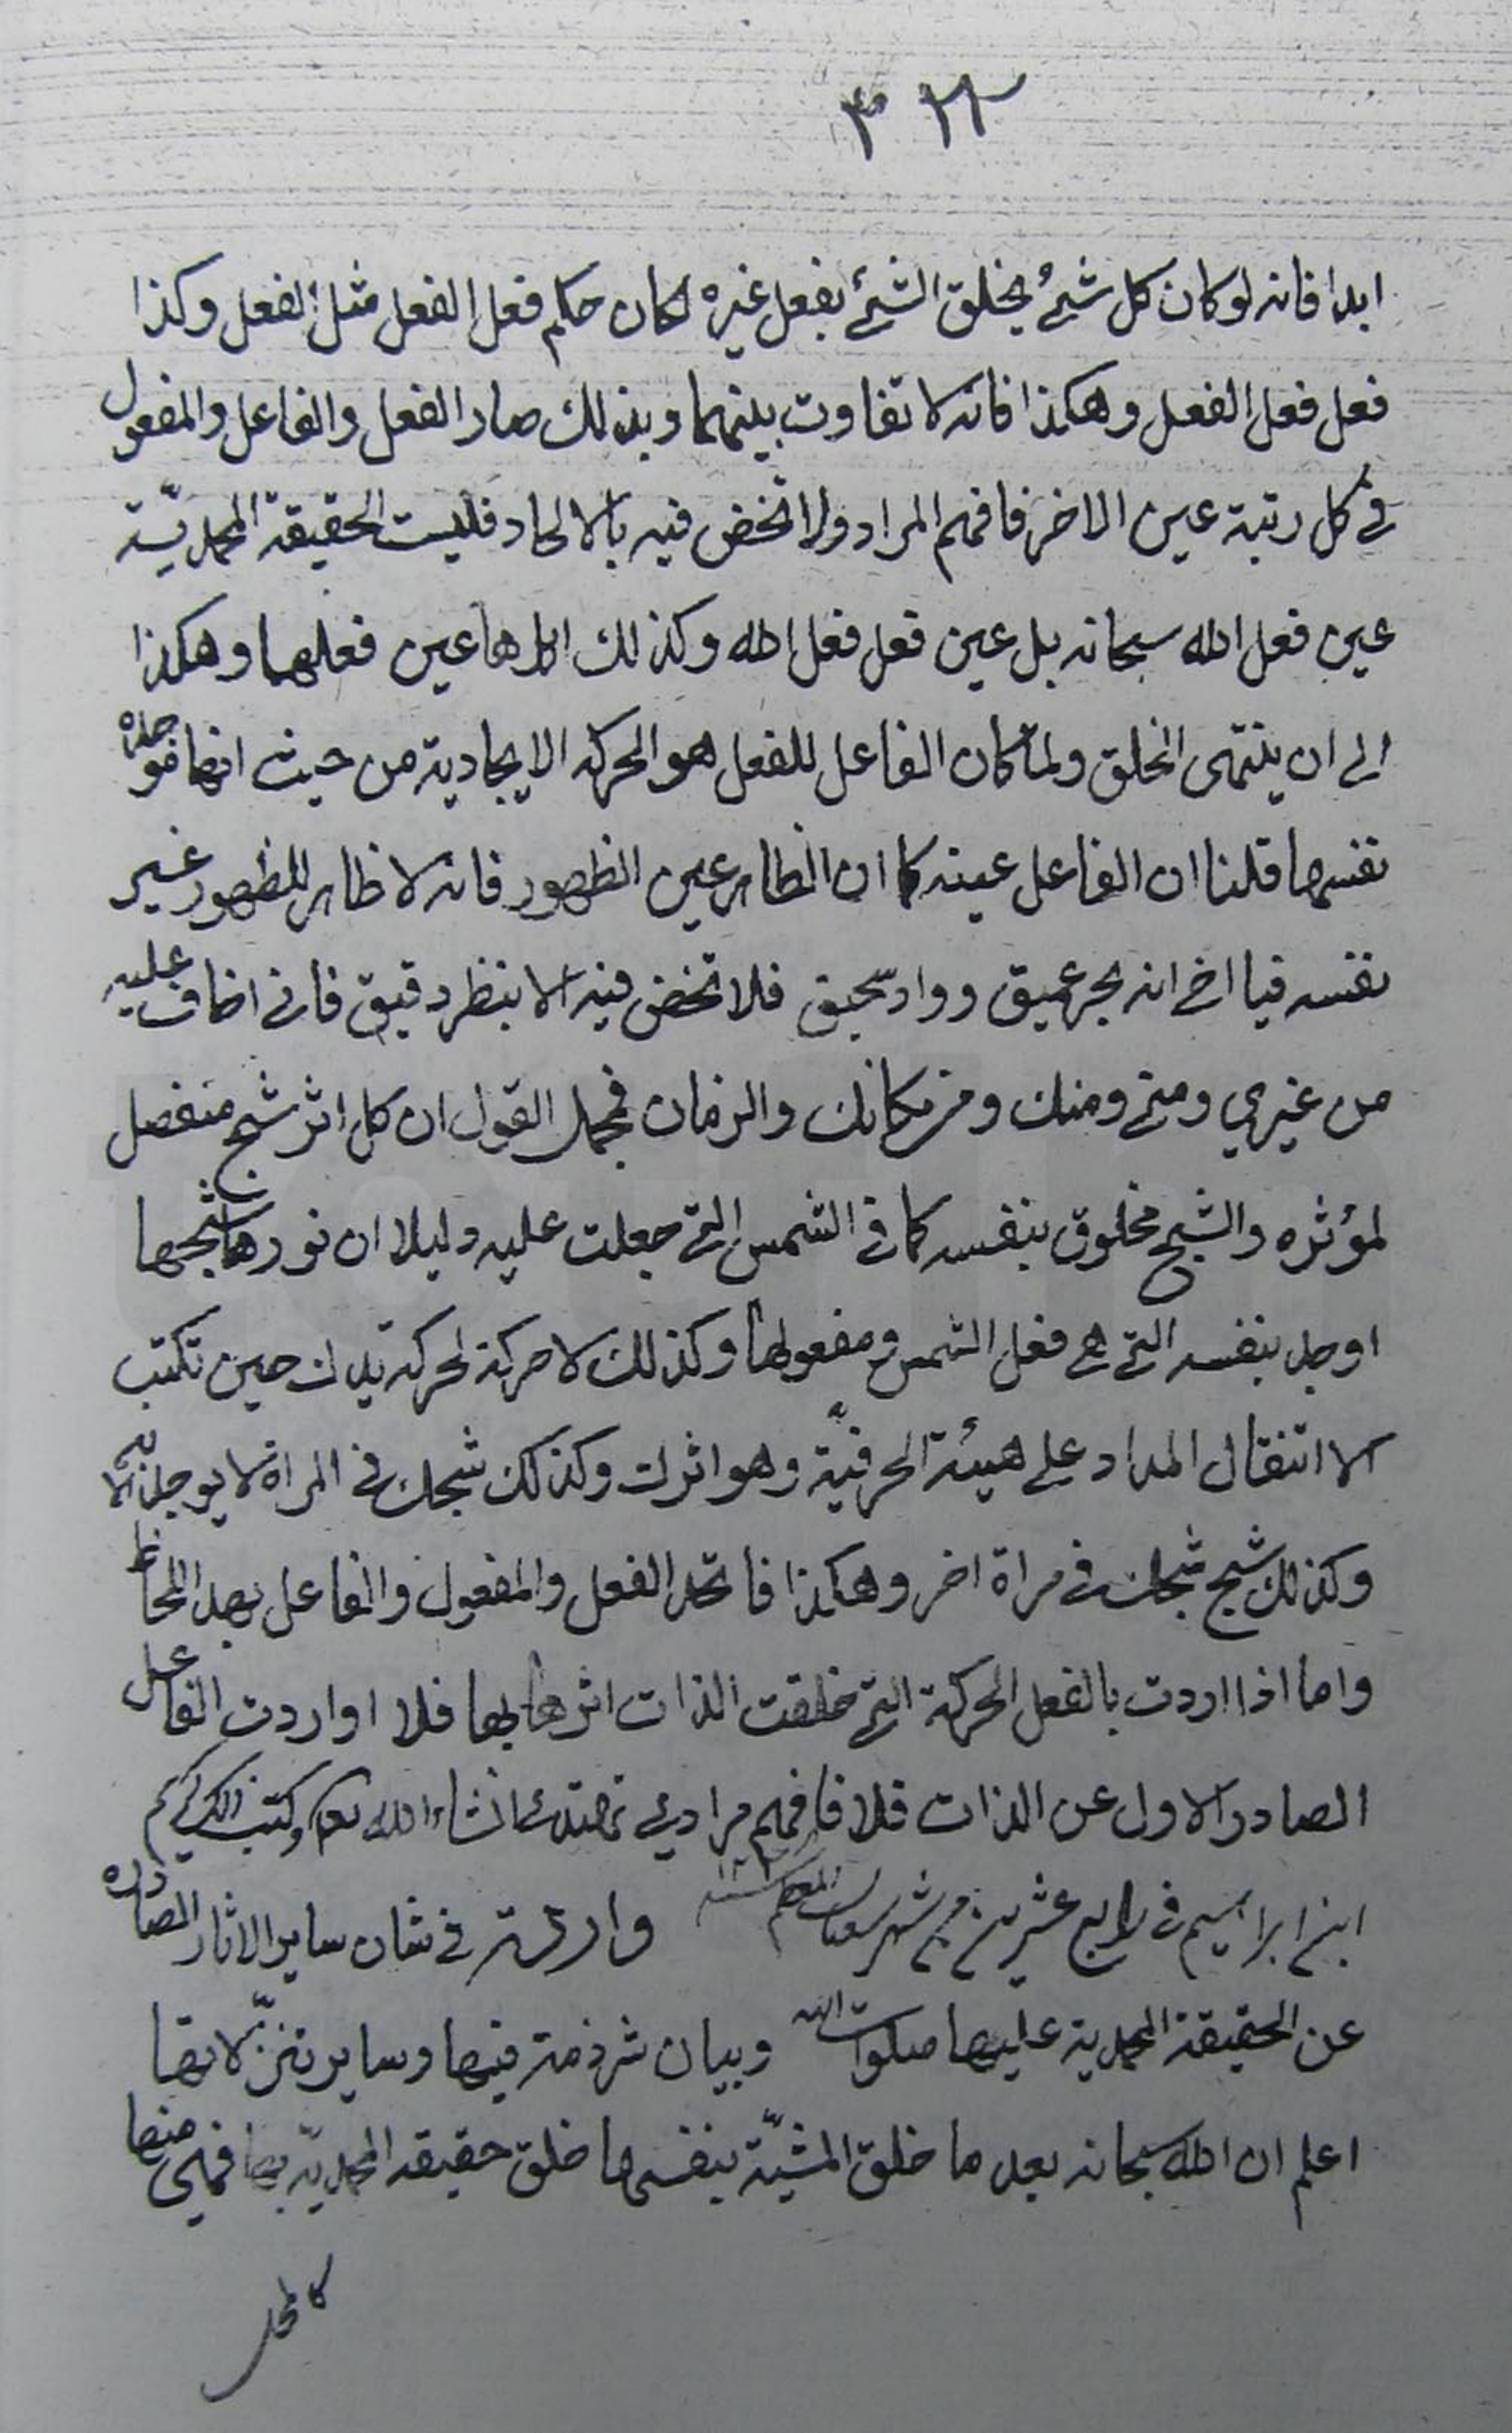 ابدا فانه لو كان كل شئ يخلق الشئ بفعل غيره لكان حكم فعل الفعل مثل الفعل وكذا
فعل فعل الفعل وهكذا فانه لا تفاوت بينهما وبذلك صار الفعل والفاعل والمفعول
في كل رتبة عين الاخر فافهم المراد ولا تخض فيه بالالحاد فليست الحقيقة المحمديّة
عين فعل الله سبحانه بل عين فعل فعل الله وكذلك اثرها عين فعلهما وهكذا
الى ان ينتهى الخلق ولما كان الفاعل للفعل هو الحركة الايجادية من حيث انها فوجده
نفسها قلنا ان الفاعل عينه كما ان الظاهر عين الظهور فانه لا ظاهر للظهور غير
نفسه فيا اخى انه بحر عميق وواد سحيق فلا تخض فيه الا بنظر دقيق فانى اخاف عليه
من غيري ومنى ومنك ومن مكانك والزمان فمجمل القول ان كل اثر شبح منفصل
لمؤثره والشبح مخلوق بنفسه كما فى الشمس التى جعلت عليه دليلا ان نورها شبحها
اوجد بنفسه التى هى فعل الشمس ومفعولها وكذلك لا حركة لحركة يدك حين تكتب
الا انتقال المداد على هيئة الحرفيّة وهو اثرك وكذلك شبحك فى المراة لا يوجد الا به
وكذلك شبح شبحك فى مراة اخر وهكذا فاتحد الفعل والمفعول والفاعل بهذا اللحاظ
واما اذا اردت بالفعل الحركة التى خلقت الذات اثرها بها فلا او اردت الفاعل
الصادر الاول عن الذات فلا فافهم مرادى تهتدى انشاء الله تعالى وكتب ذلك كريم
ابن ابراهيم فى رابع عشرين من شهر شعبان المعظم
فى شان ساير الاثار الصادره
عن الحقيقة المحمدية عليها صلوات الله وبيان شرذمة فيها وساير تنزّلاتها
اعلم ان الله سبحانه بعد ما خلق المشيّة بنفسها خلق حقيقة المحمديّة بها فهى منها